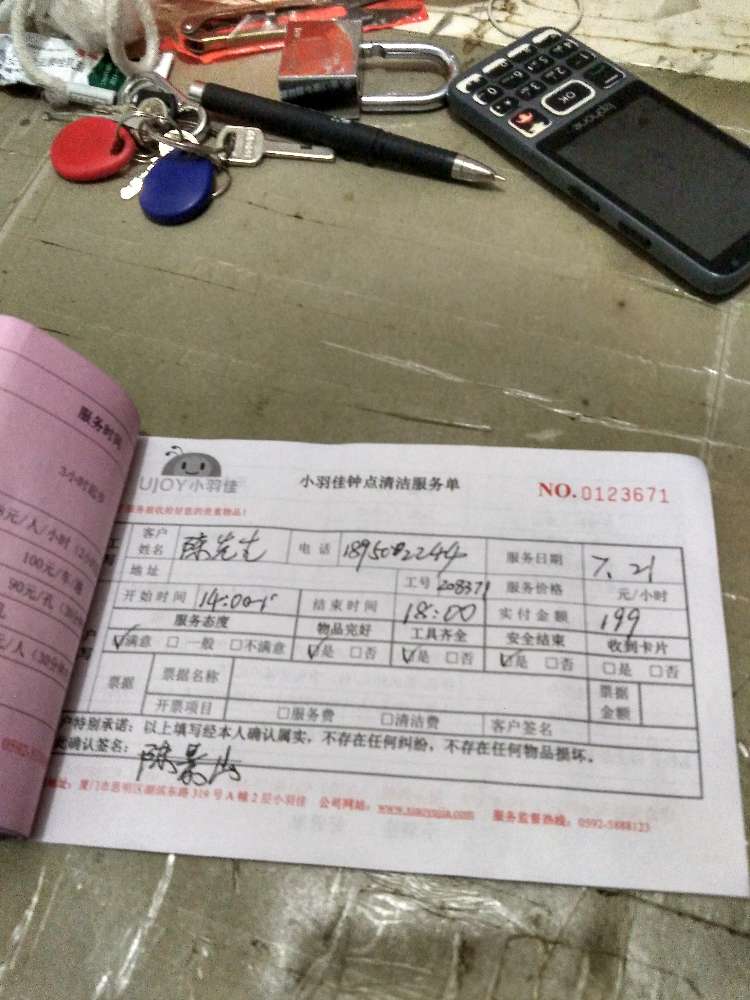 techone
OK
服务时间
3小时起步
元/人/小时
100元/车/
90元/孔
孔
元/人
UJOY小羽佳
小羽佳钟点清洁服务单
NO.0123671
客户姓名 陈先生 电话 服务日期 7.21
地址 工号 208371 服务价格 元/小时
开始时间 14:00 结束时间 18:00 实付金额 199
服务态度 物品完好 工具齐全 安全结束 收到卡片
满意 □ 一般 □不满意 是 □否 是 □否 是 □否 □是 □否
票据 票据名称 票据金额
开票项目 □服务费 □清洁费 客户签名
特别承诺：以上填写经本人确认属实，不存在任何纠纷，不存在任何物品损坏。
确认签名：
地址：厦门市思明区湖滨东路319号A幢2层小羽佳 公司网站： 服务监督热线：0592-5888123